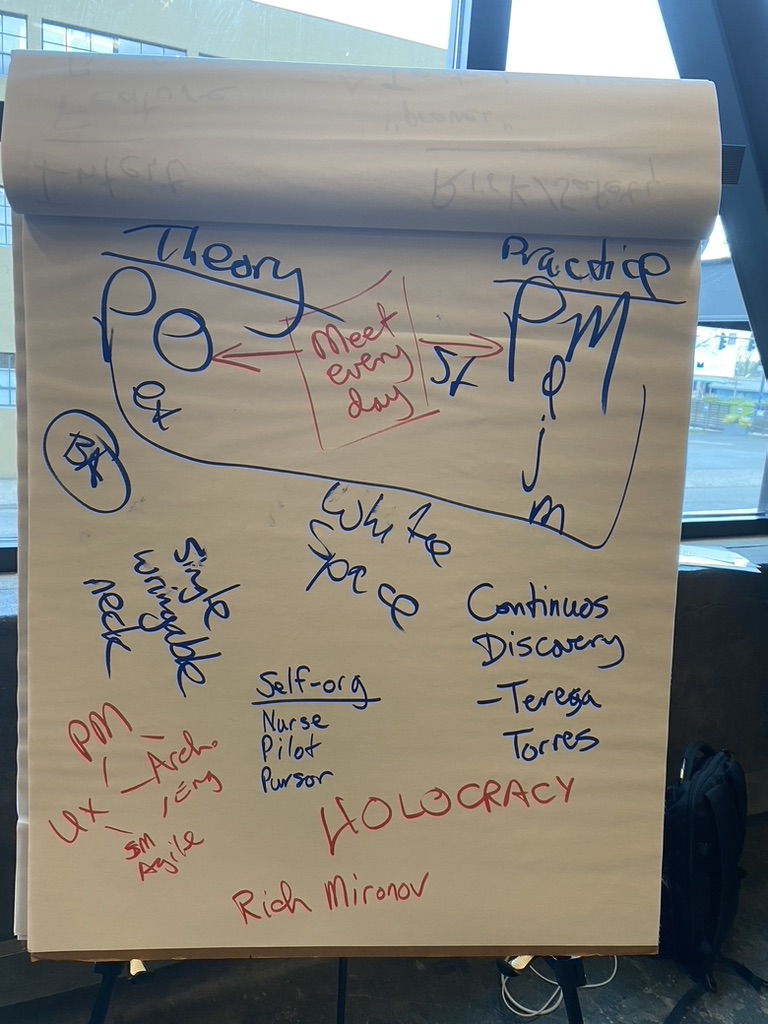 Theory
Practice
PO
Meet
every
day
PM
White
Space
Single
wringable
neck
Continuos
Discovery
-Teresa
Torres
Self-org
Nurse
Pilot
Pursor
PM
Arch.
Eng
UX
SM
Agile
HOLOCRACY
Rich Mironov
Intent
Risk/Safety
Feature
"proven"